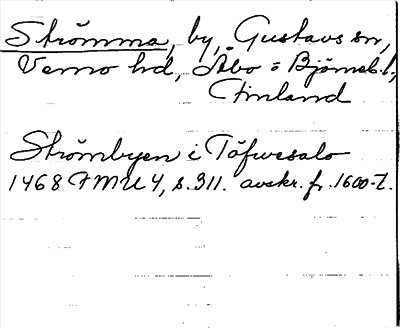 Strömma, by, Gustavs sn,
Vemo hd, Åbo = Björneb. l.,
Finland
Strömbyen i Töfwesalo
1468 FMU 4, s. 311. avskr. fr. 1600-t.